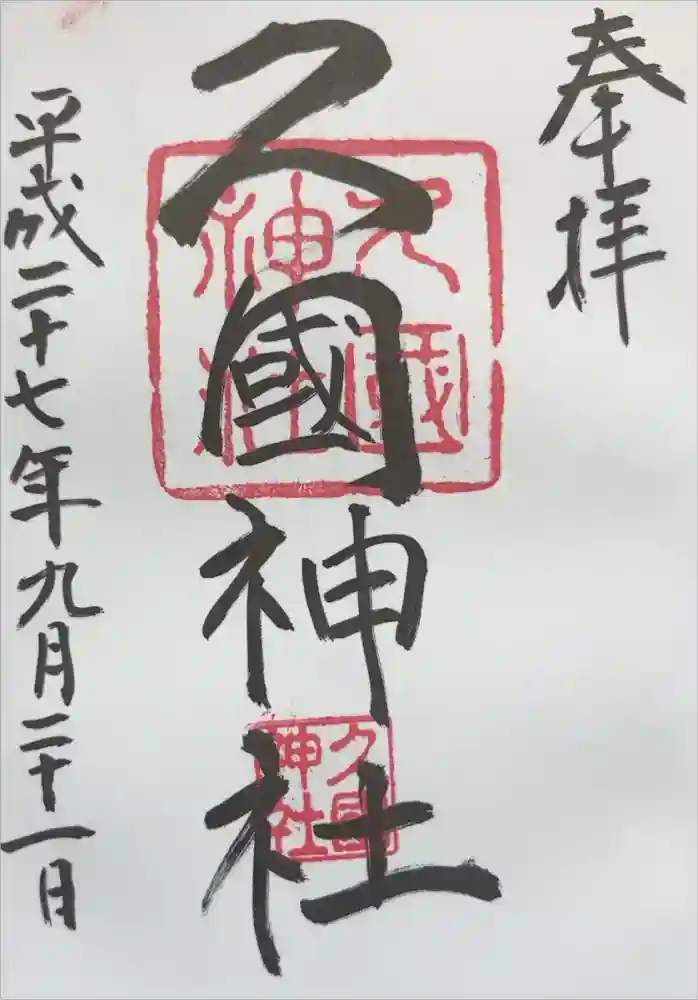 奉拝
久國神社
久國
神社
久國
神社
平成二十七年九月二十一月